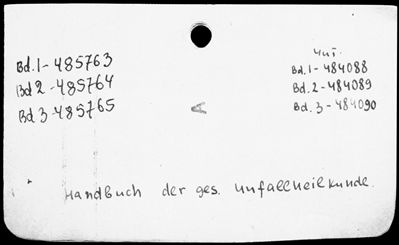 Bd.1-485763
Bd 2-485764
Bd 3-485765
A
Bd.1-484088
Bd.2-484089
Bd.3-484090
Handbuch der ges. Unfallheilkunde.